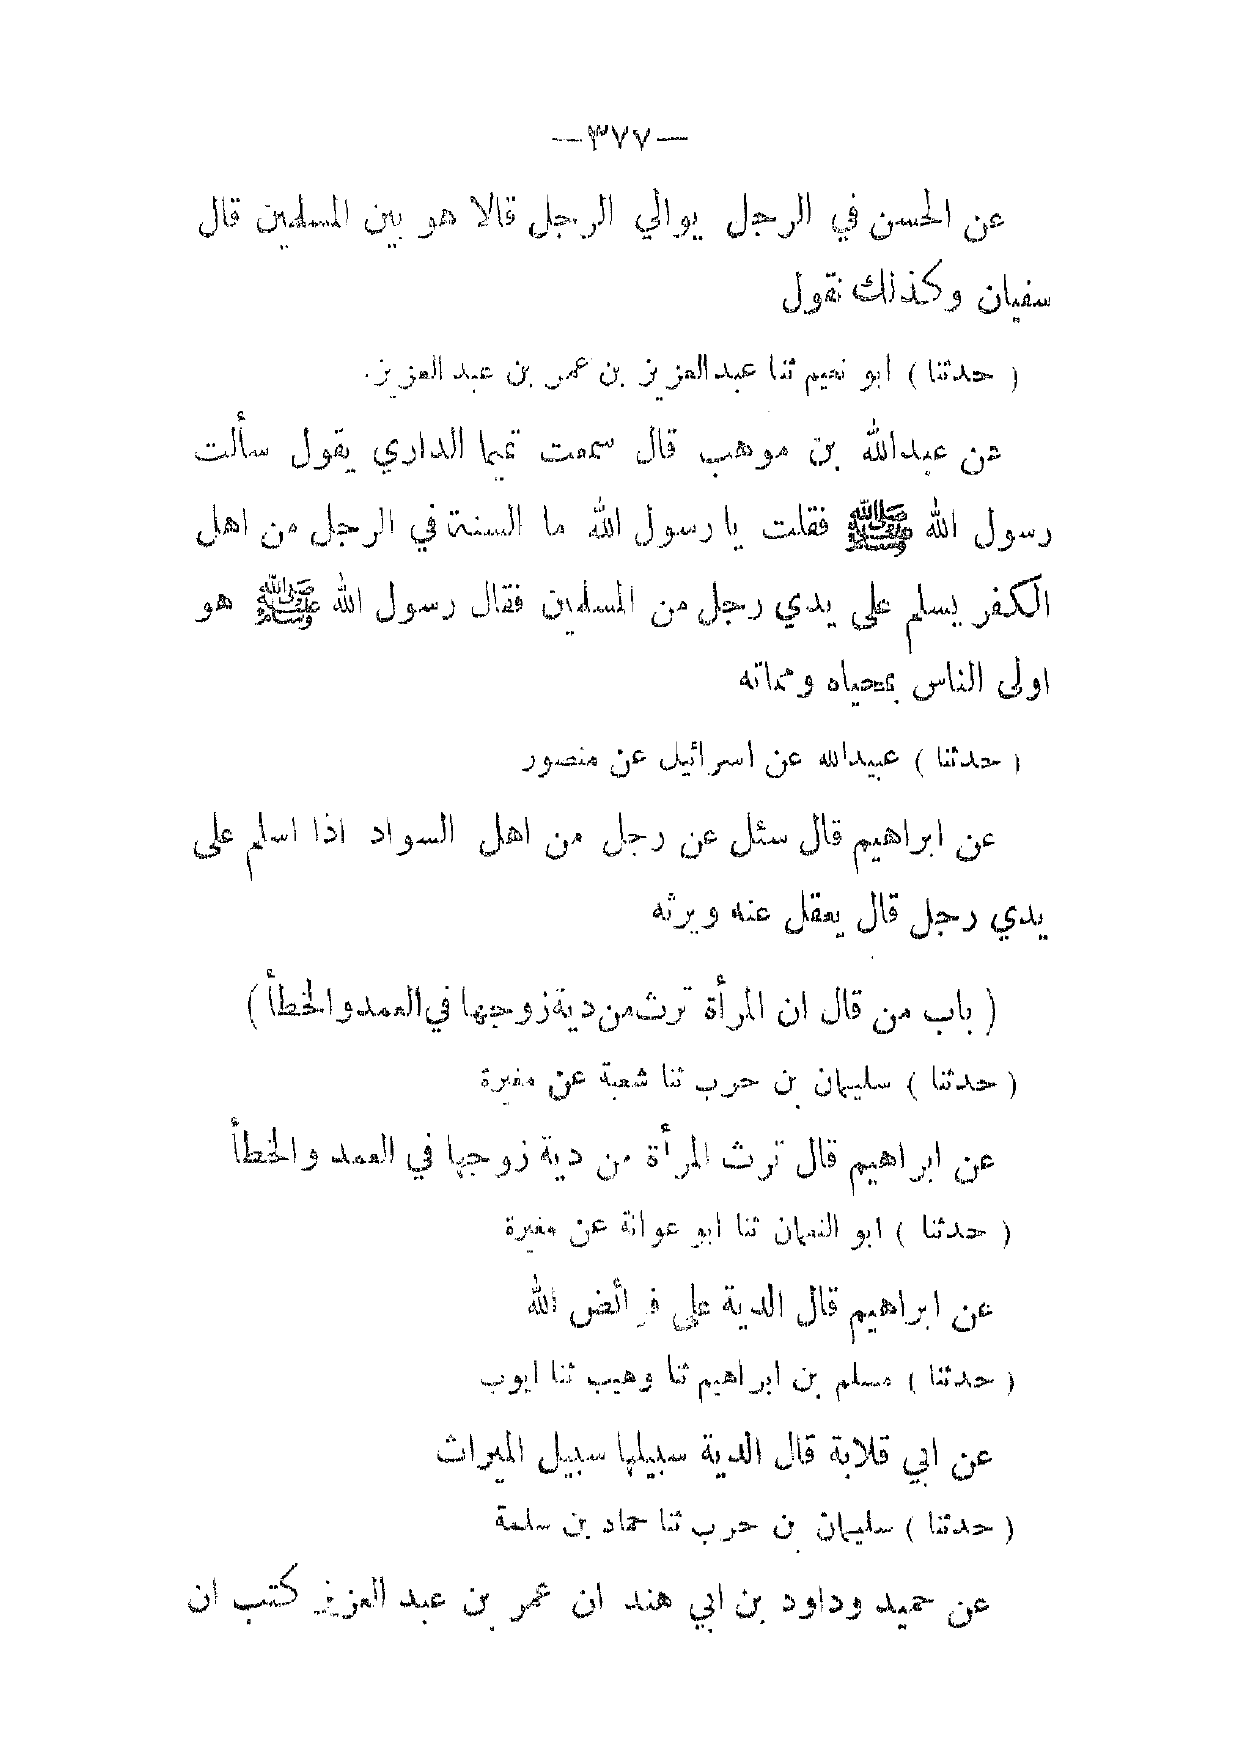 —٣٧٧—
عن الحسن في الرجل يوالي الرجل قالا هو بين المسلمين قال
سفيان وكذلك نقول
( حدثنا ) ابو نعيم ثنا عبدالعزيز بن عمر بن عبد العزيز.
عن عبدالله بن موهب قال سمعت تميما الداري يقول سألت
رسول الله ﷺ فقلت يا رسول الله ما السنة في الرجل من اهل
الكفر يسلم على يدي رجل من المسلمين فقال رسول الله ﷺ هو
اولى الناس بمحياه ومماته
( حدثنا ) عبيدالله عن اسرائيل عن منصور
عن ابراهيم قال سئل عن رجل من اهل السواد اذا اسلم على
يدي رجل قال يعقل عنه ويرثه
( باب من قال ان المرأة ترث من دية زوجها في العمد والخطأ )
( حدثنا ) سليمان بن حرب ثنا شعبة عن مغيرة
عن ابراهيم قال ترث المرأة من دية زوجها في العمد والخطأ
( حدثنا ) ابو النعمان ثنا ابو عوانة عن مغيرة
عن ابراهيم قال الدية على فرائض الله
( حدثنا ) مسلم بن ابراهيم ثنا وهيب ثنا ايوب
عن ابي قلابة قال الدية سبيلها سبيل الميراث
( حدثنا ) سليمان بن حرب ثنا حماد بن سلمة
عن حميد وداود بن ابي هند ان عمر بن عبد العزيز كتب ان